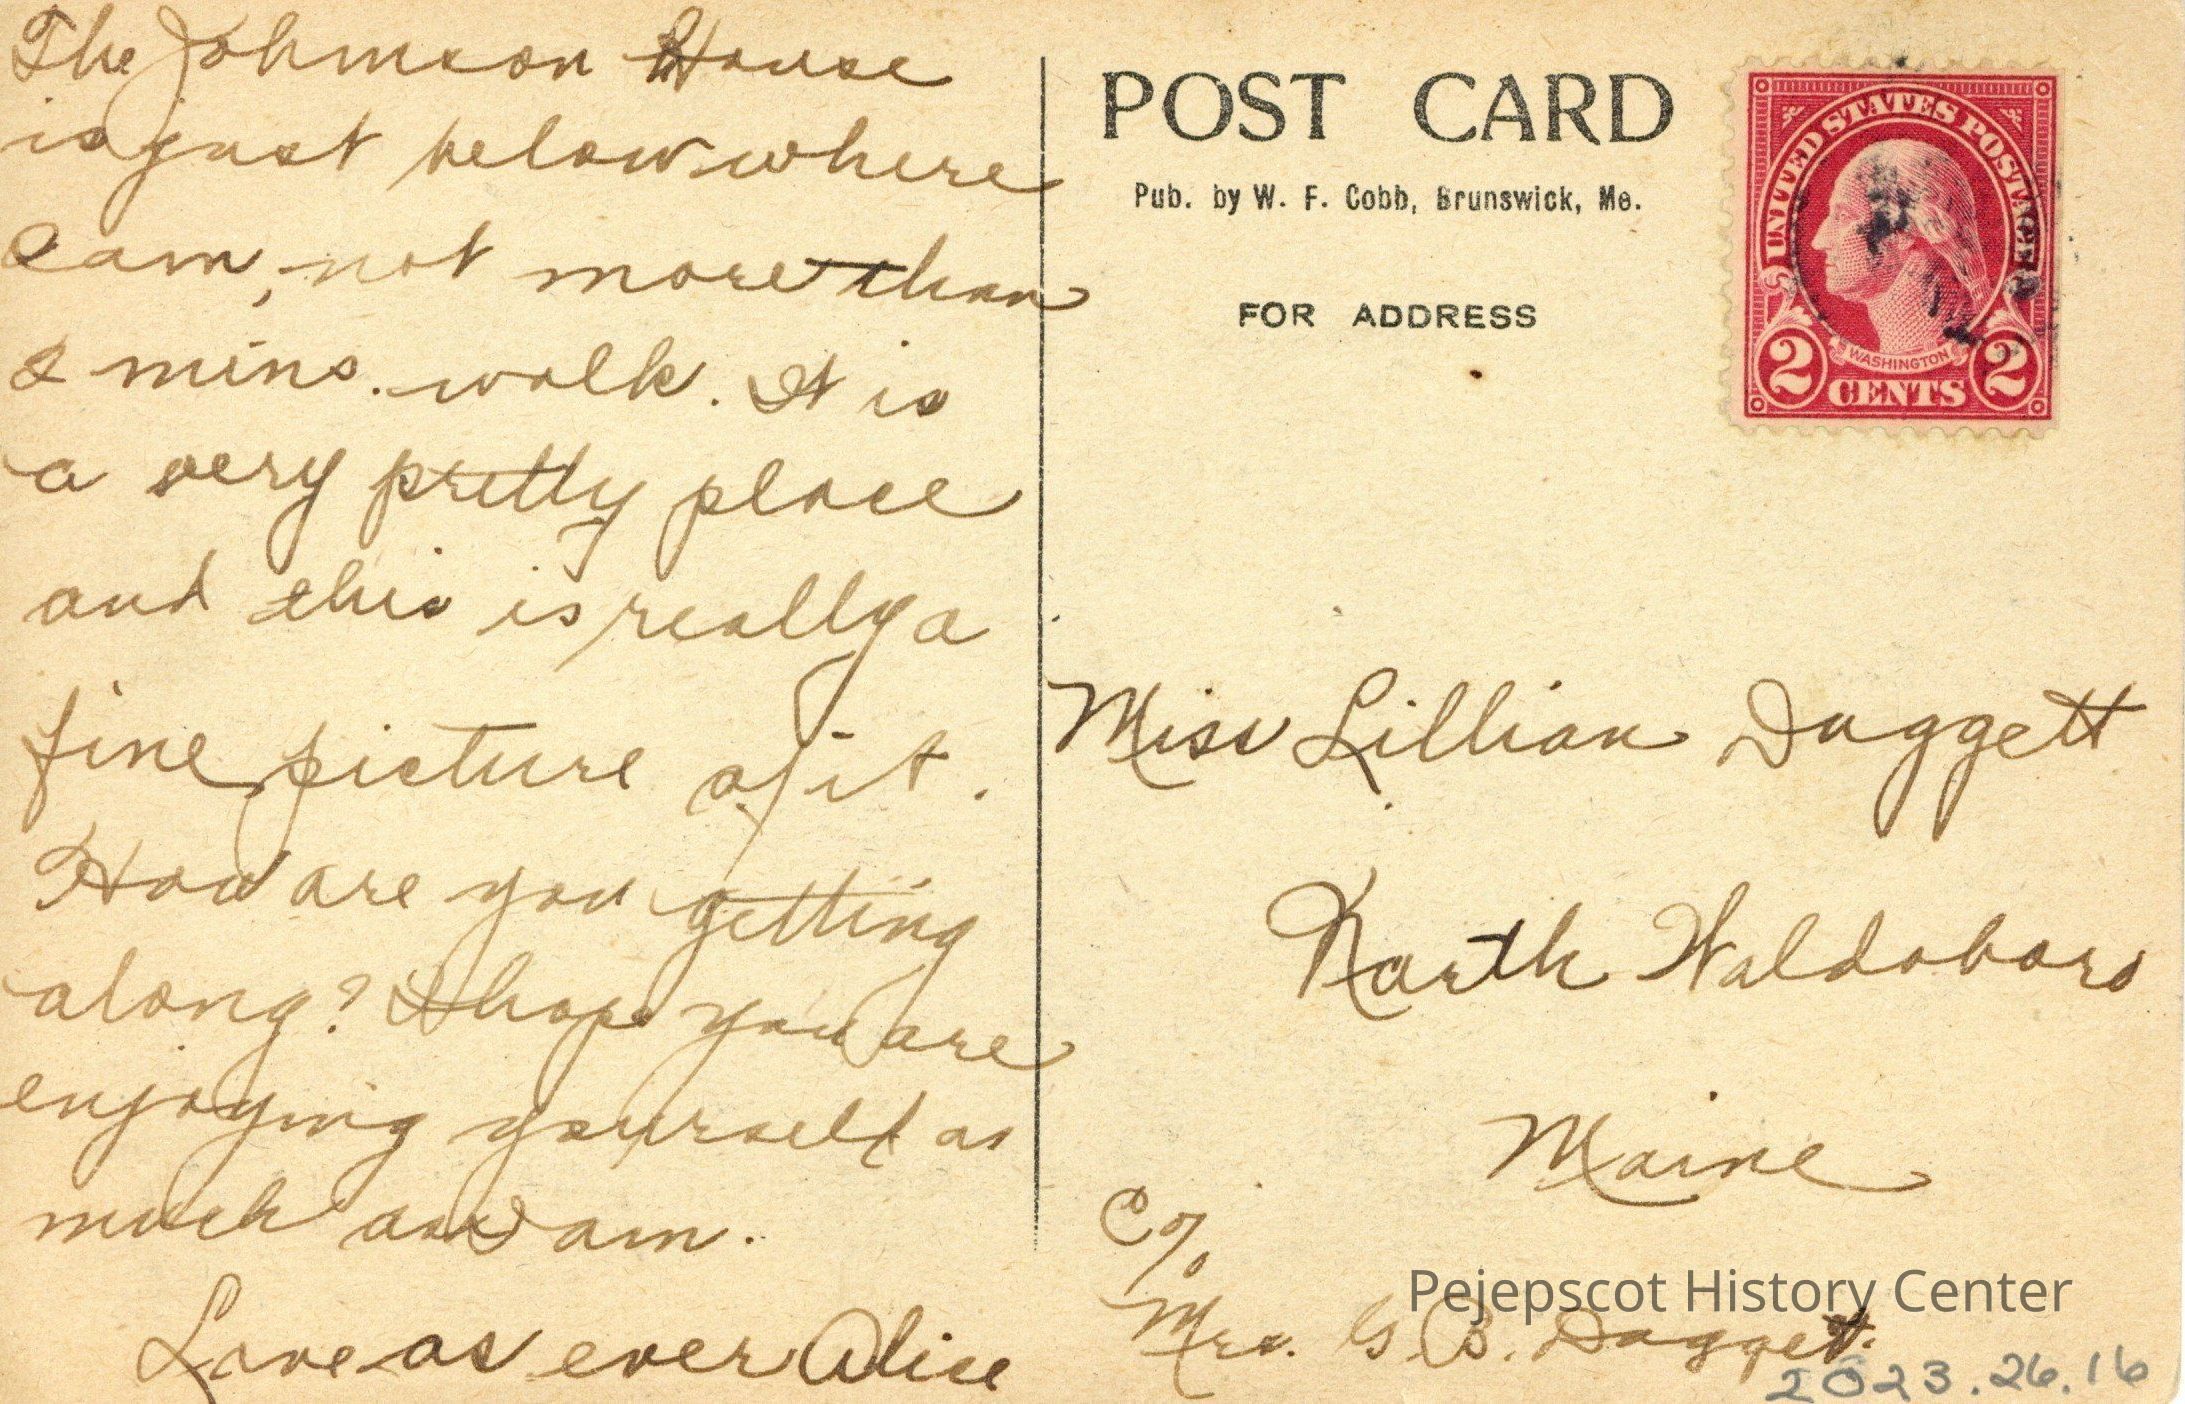 The Johnson House
is just below where
I am, not more than
2 mins. walk. It is
a very pretty place
and this is really a
fine picture of it.
How are you getting
along? I hope you are
enjoying yourself as
much as I am.
Love as ever Alice
POST CARD
Pub. by W. F. Cobb, Brunswick, Me.
FOR ADDRESS
UNITED STATES POSTAGE
WASHINGTON
2 CENTS 2
Miss Lillian Daggett
North Waldoboro
Maine
C/o
Mrs. G. B. Daggett.
Pejepscot History Center
2023.26.16